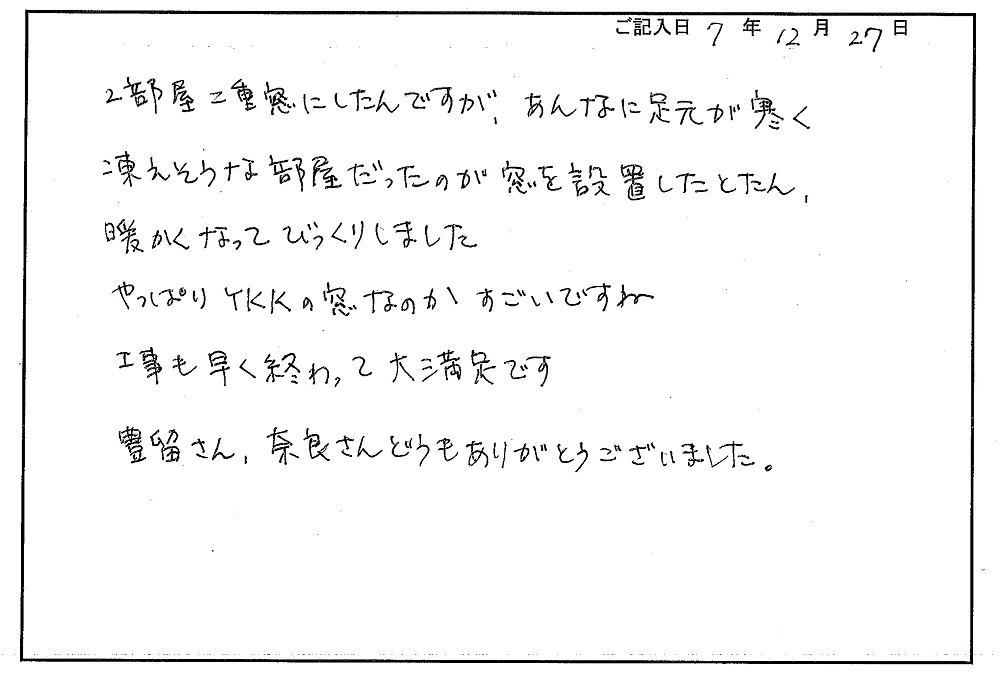 ご記入日 7 年 12 月 27 日
2部屋二重窓にしたんですが、あんなに足元が寒く
凍えそうな部屋だったのが窓を設置したとたん、
暖かくなってびっくりしました
やっぱりYKKの窓なのか すごいですね
工事も早く終わって大満足です
豊留さん、奈良さんどうもありがとうございました。